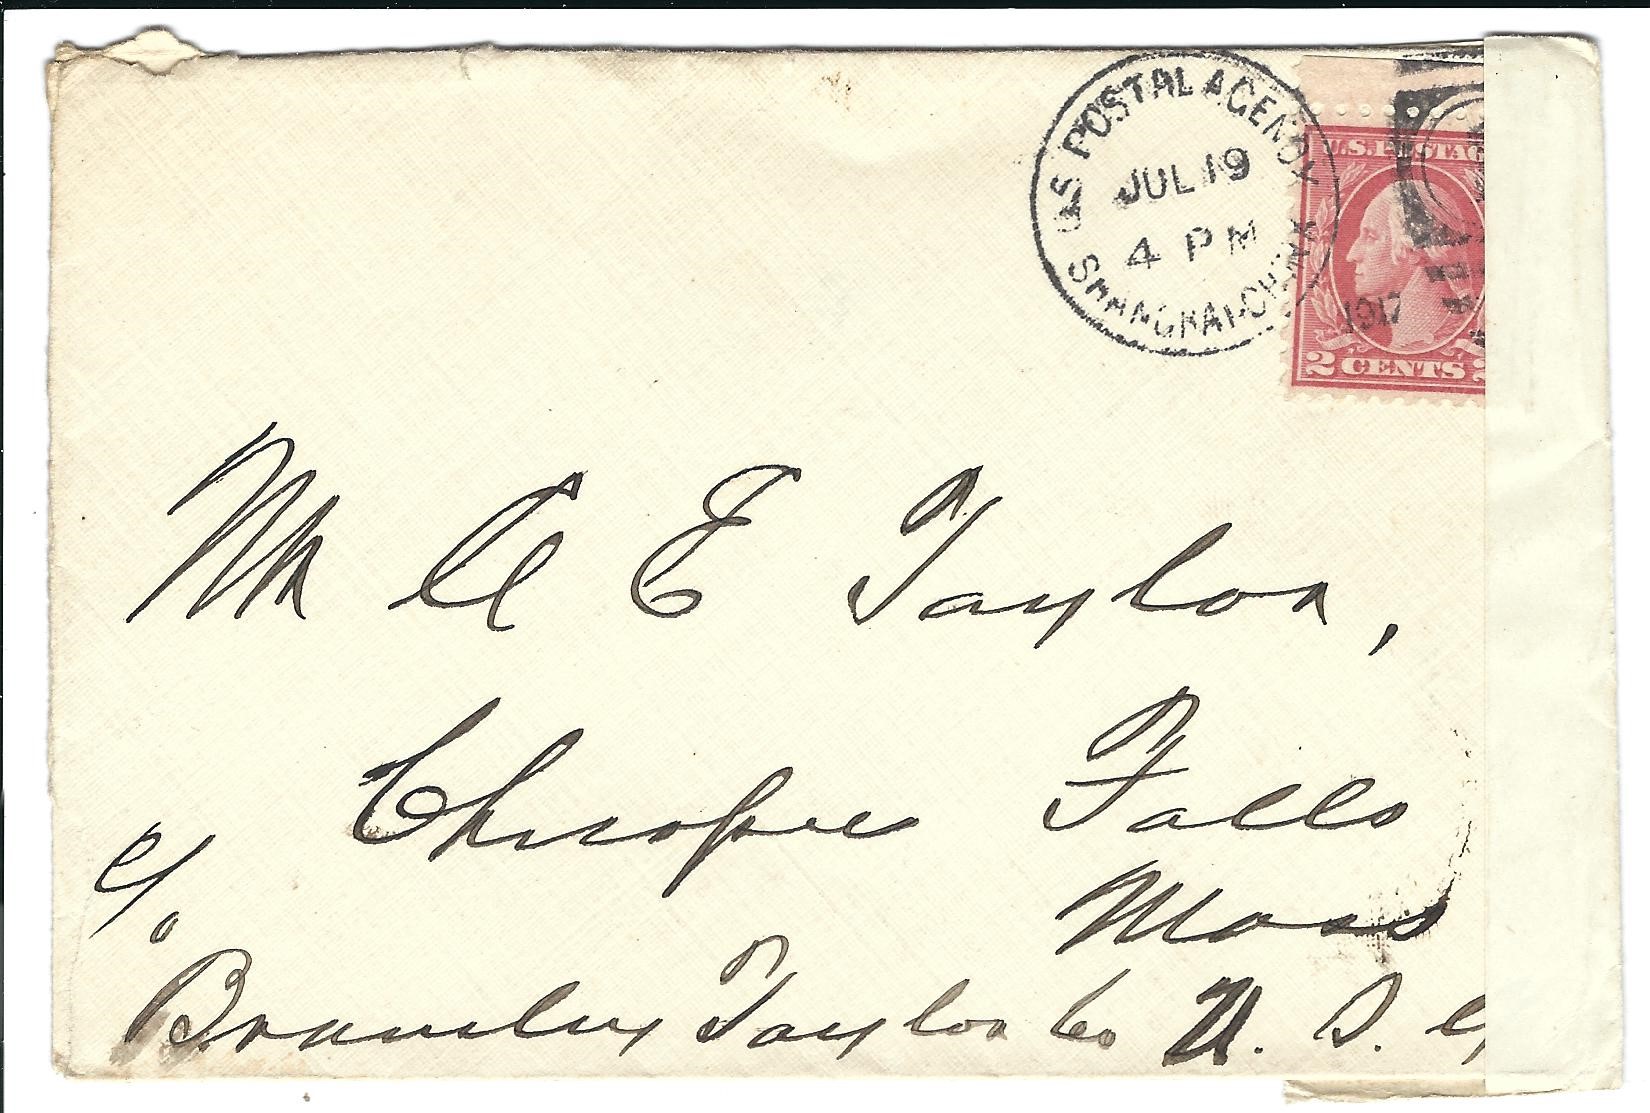 U.S. POSTAL AGENCY
JUL 19
4 PM
SHANGHAI CHINA
1917
U.S. POSTAG
2 CENTS 2
Mr A E Taylor,
Chicopee Falls
Mass
c/o
Taylor Co U. S.